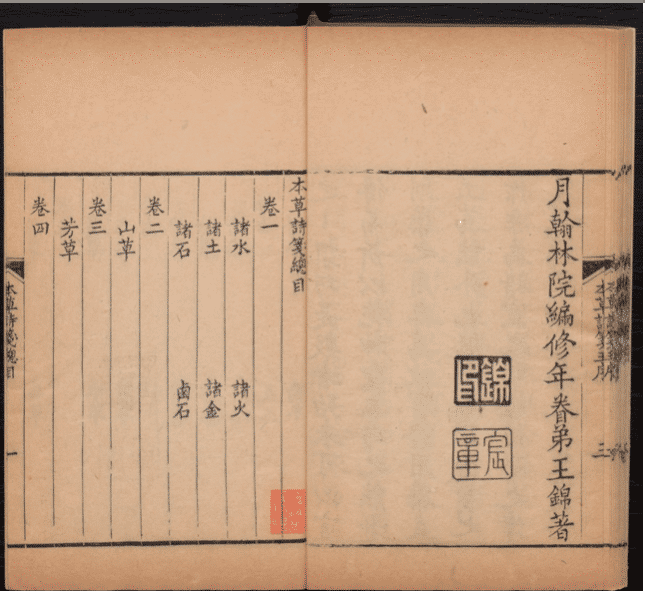 三
月翰林院編修年眷弟王錦著
錦印
宸章
本草詩箋總目
卷一
諸水　諸火
諸土　諸金
諸石　鹵石
卷二
山草
卷三
芳草
卷四
本草詩箋總目
一